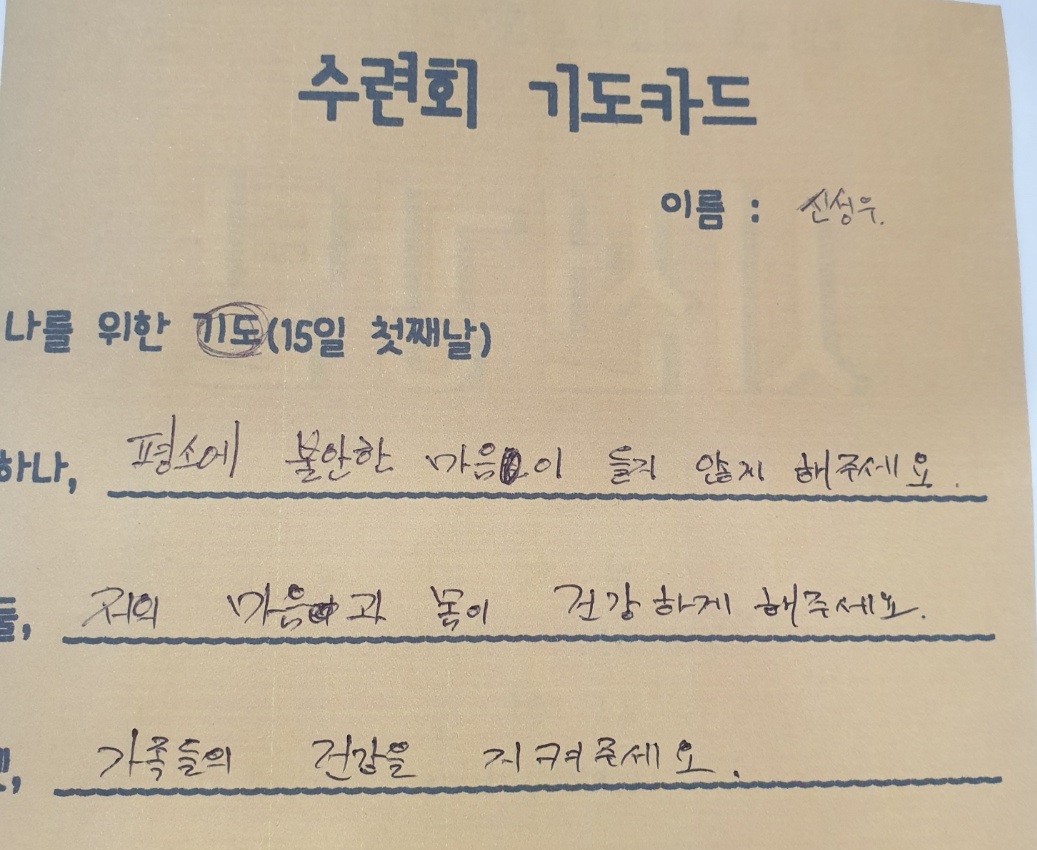 수련회 기도카드
이름 : 신성우.
나를 위한 기도(15일 첫째날)
하나, 평소에 불안한 마음이 들지 않게 해주세요.
둘, 저의 마음과 몸이 건강하게 해주세요.
가족들의 건강을 지켜주세요.